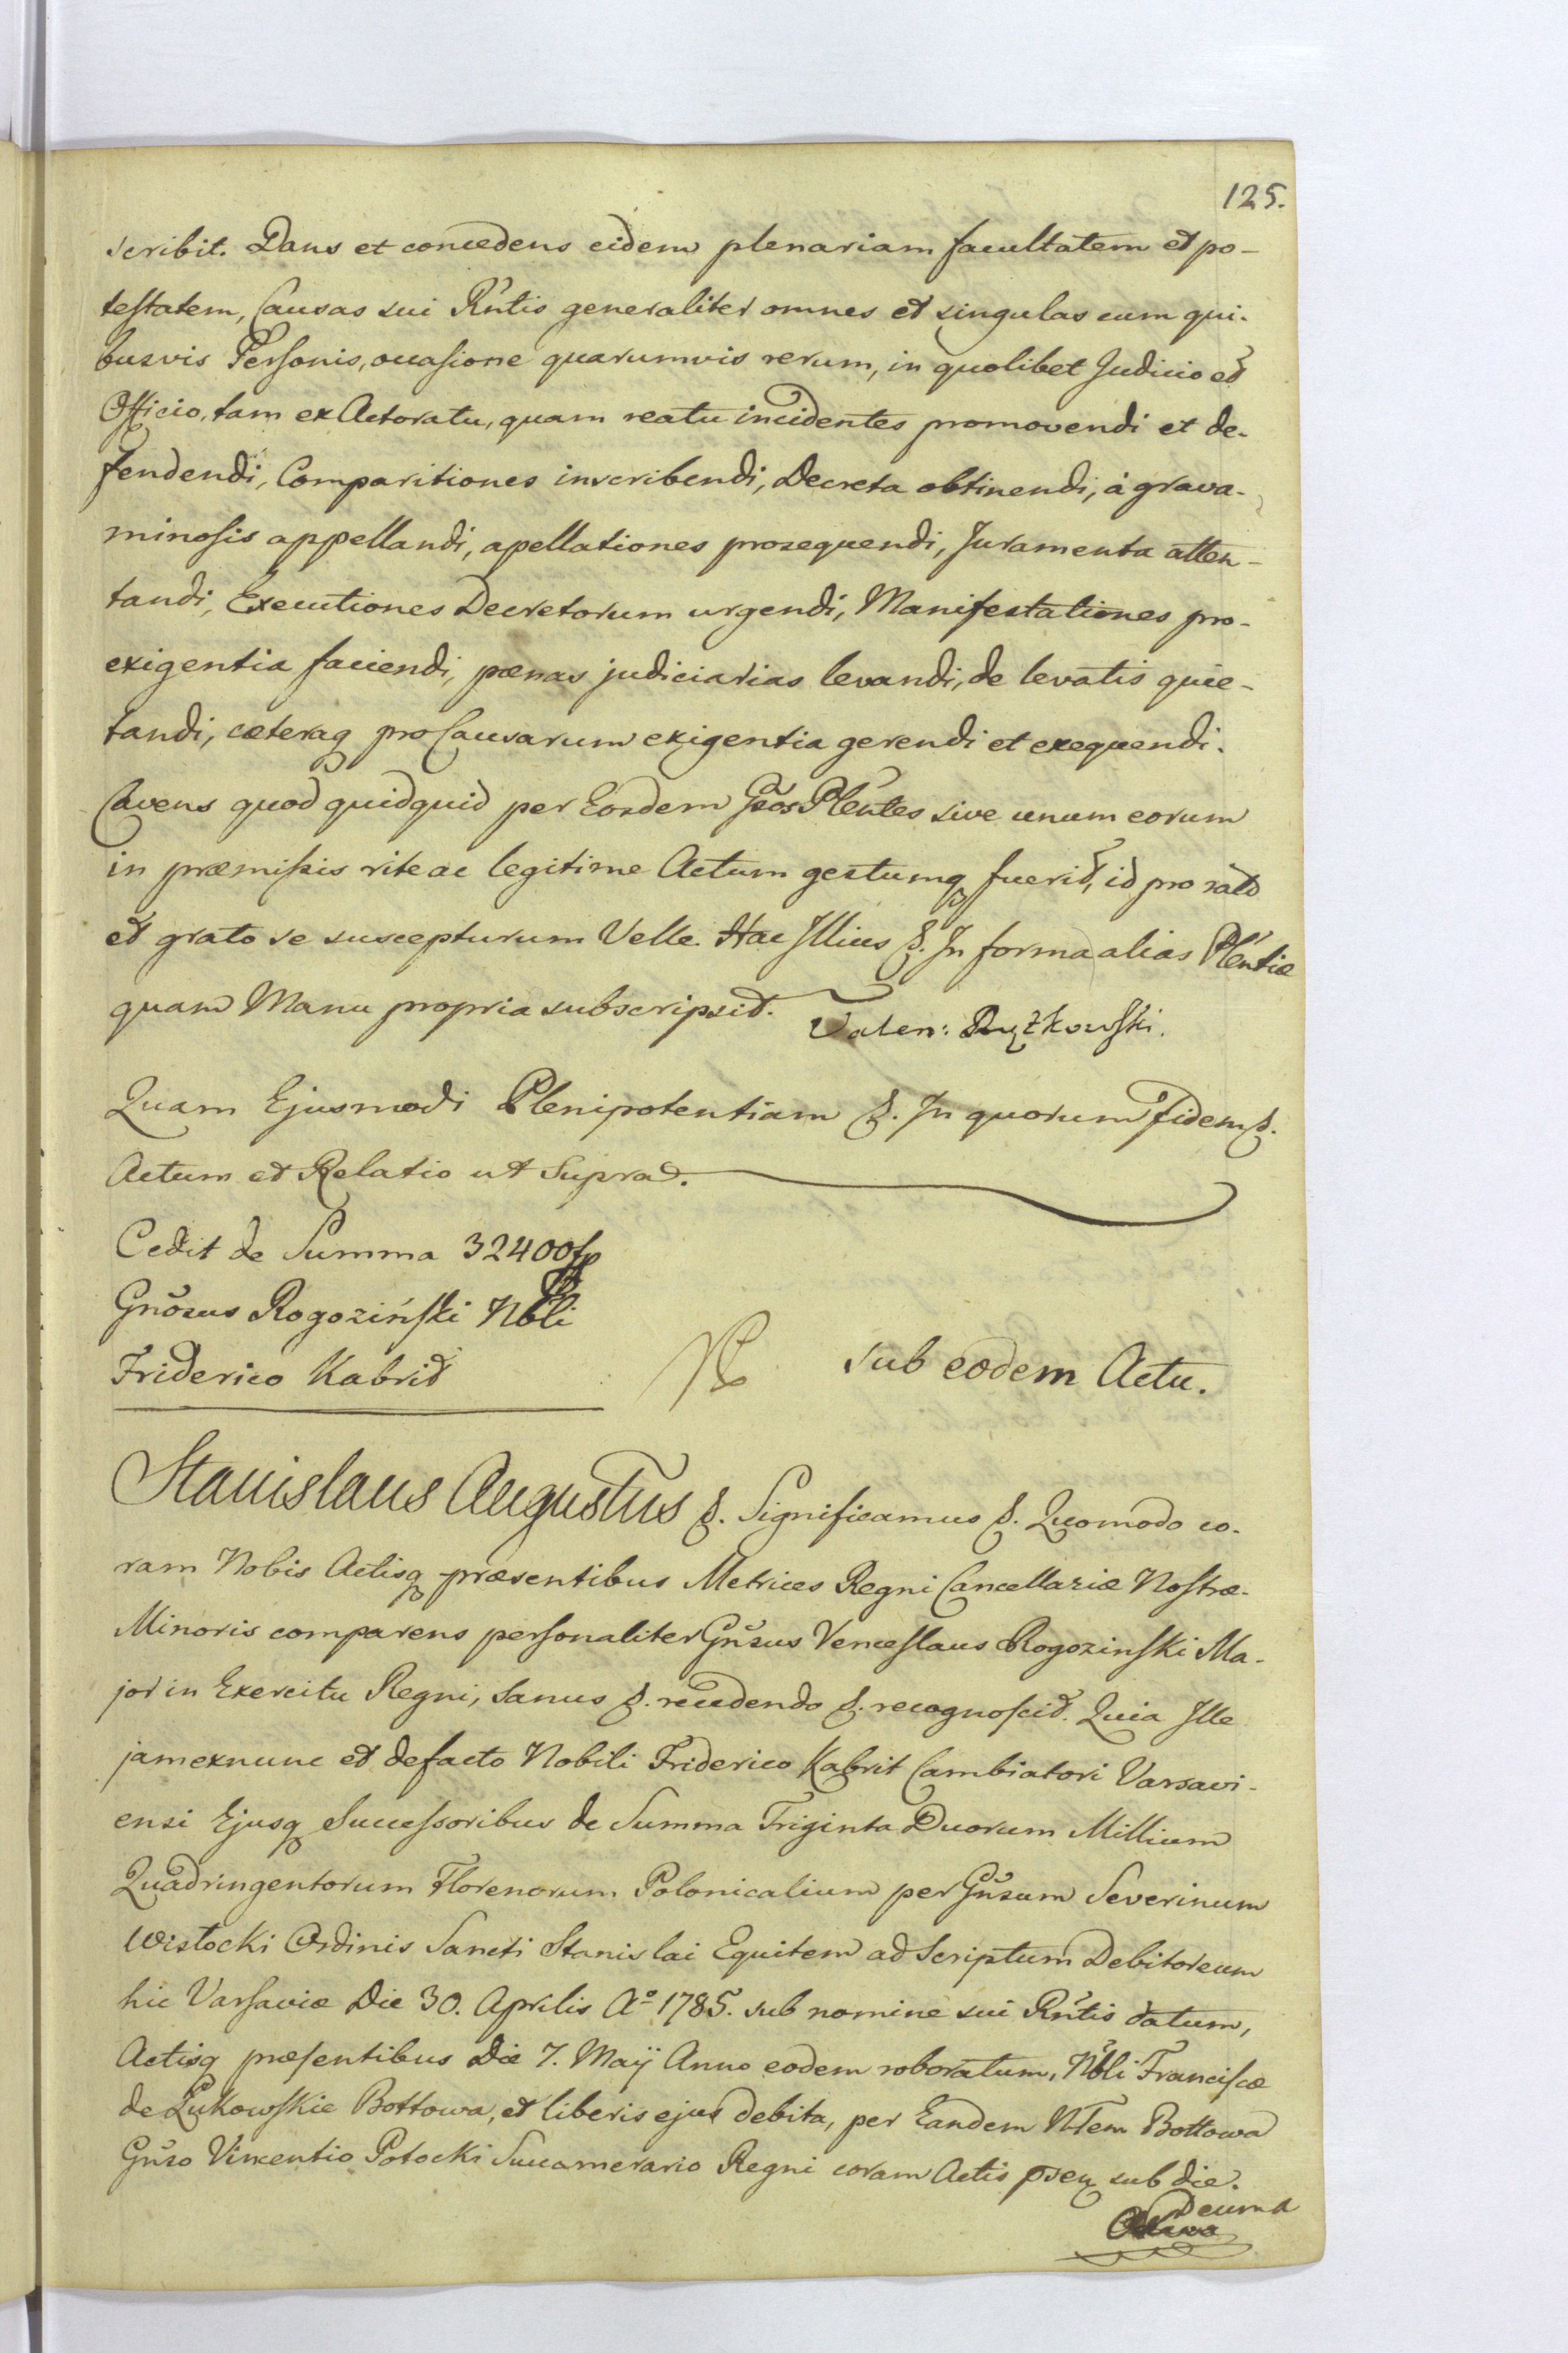 125.
scribit. Dans et concedens eidem plenariam facultatem et po-
testatem, Causas sui Rñtis generaliter omnes et singulas cum qui-
busvis Personis, occasione quarumvis rerum, in quolibet Judicio et
Officio, tam ex Actoratu, quam reatu incidentes promovendi et de-
fendendi, Comparitiones inscribendi, Decreta obtinendi, à grava-
minosis appellandi, apellationes prosequendi, Juramenta atten-
tandi, Executiones Decretorum urgendi, Manifestationes pro-
exigentia faciendi, pænas judiciarias levandi, de levatis quie-
tandi, cæteraq pro Causarum exigentia gerendi et exequendi.
Cavens quod quidquid per Eosdem Gsos Plentes sive unum eorum
in præmissis rite ac legitime Actum gestumq fuerit, id pro rato
et grato se suscepturum Velle. Hac Illius &. In forma alias Plentiæ
quam Manu propria subscripsit. Valen: Rużkowski.
Quam Ejusmodi Plenipotentiam &. In quorum Fidem &.
Actum et Relatio ut Supra.
Cedit de Summa 32400 fp
Gnõsus Rogoziński Nbli
Friderico Kabrit
sub eodem Actu.
Stanislaus Augustus &. Significamus &. Quomodo co-
ram Nobis Actisq præsentibus Metrices Regni Cancellariæ Nostræ
Minoris comparens personaliter Gnsus Venceslaus Rogozinski Ma-
jor in Exercitu Regni, sanus &. recedendo &. recognoscit. Quia Ille
jam exnunc et defacto Nobili Friderico Kabrit Cambiatori Varsavi-
ensi Ejusq Successoribus de Summa Triginta Duorum Millium
Quadringentorum Florenorum Polonicalium per Gnsum Severinum
Wistocki Ordinis Sancti Stanislai Equitem ad Scriptum Debitoreum
hic Varsaviæ Die 30. Aprilis Aº 1785. sub nomine sui Rñtis datum,
Actisq præsentibus Die 7. Maÿ Anno eodem roboratum, Nbli Franciscæ
de Łukowskie Bottowa, et liberis ejus debita, per Eandem Nlem Bottowa
Gnso Vincentio Potocki Succamerario Regni coram Actis psen sub die.
Decima